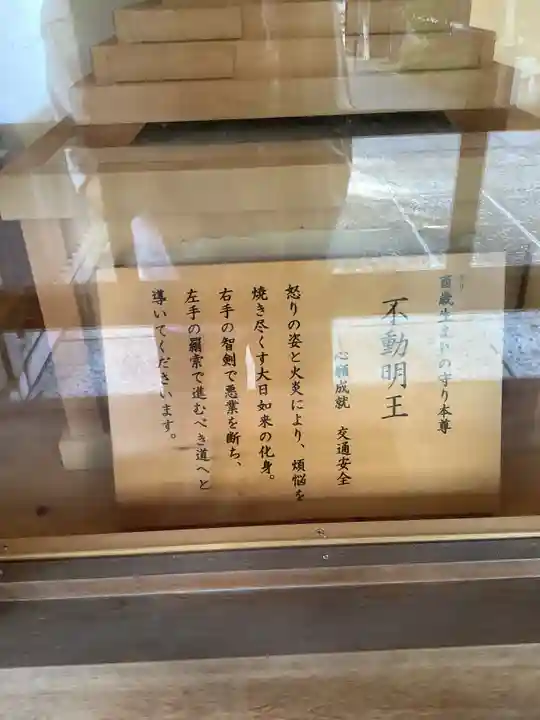 酉歳生まれの守り本尊
不動明王
心願成就 交通安全
怒りの姿と火炎により、煩悩を
焼き尽くす大日如来の化身。
右手の智剣で悪業を断ち、
左手の羂索で進むべき道へと
導いてくださいます。